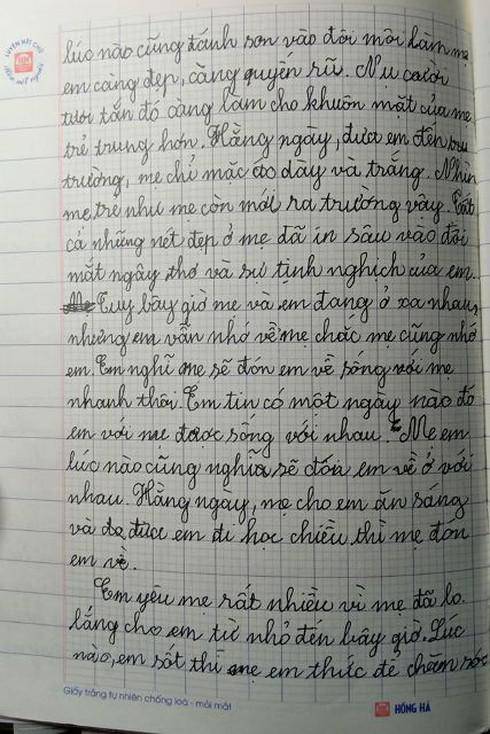 LUYỆN NÉT CHỮ
lúc nào cũng đánh son vào đôi môi làm mẹ
em càng đẹp, càng quyến rũ. Nụ cười
tươi tắn đó càng làm cho khuôn mặt của mẹ
trẻ trung hơn. Hằng ngày, đưa em đến
trường, mẹ chỉ mặc áo dày và trắng. Nhìn
mẹ trẻ như mẹ còn mới ra trường vậy. Tất
cả những nét đẹp ở mẹ đã in sâu vào đôi
mắt ngây thơ và sự tịnh nghịch của em.
Tuy bây giờ mẹ và em đang ở xa nhau,
nhưng em vẫn nhớ về mẹ chắc mẹ cũng nhớ
em. Em nghĩ mẹ sẽ đón em về sống với mẹ
nhanh thôi. Em tin có một ngày nào đó
em với mẹ được sống với nhau. Mẹ em
lúc nào cũng nghĩ sẽ đón em về ở với
nhau. Hằng ngày, mẹ cho em ăn sáng
và đưa em đi học chiều thì mẹ đón
em về.
Em yêu mẹ rất nhiều vì mẹ đã lo
lắng cho em từ nhỏ đến bây giờ. Lúc
nào, em sốt thì mẹ em thức để chăm sóc
Giấy trắng tự nhiên chống loá - mỏi mắt
HỒNG HÀ